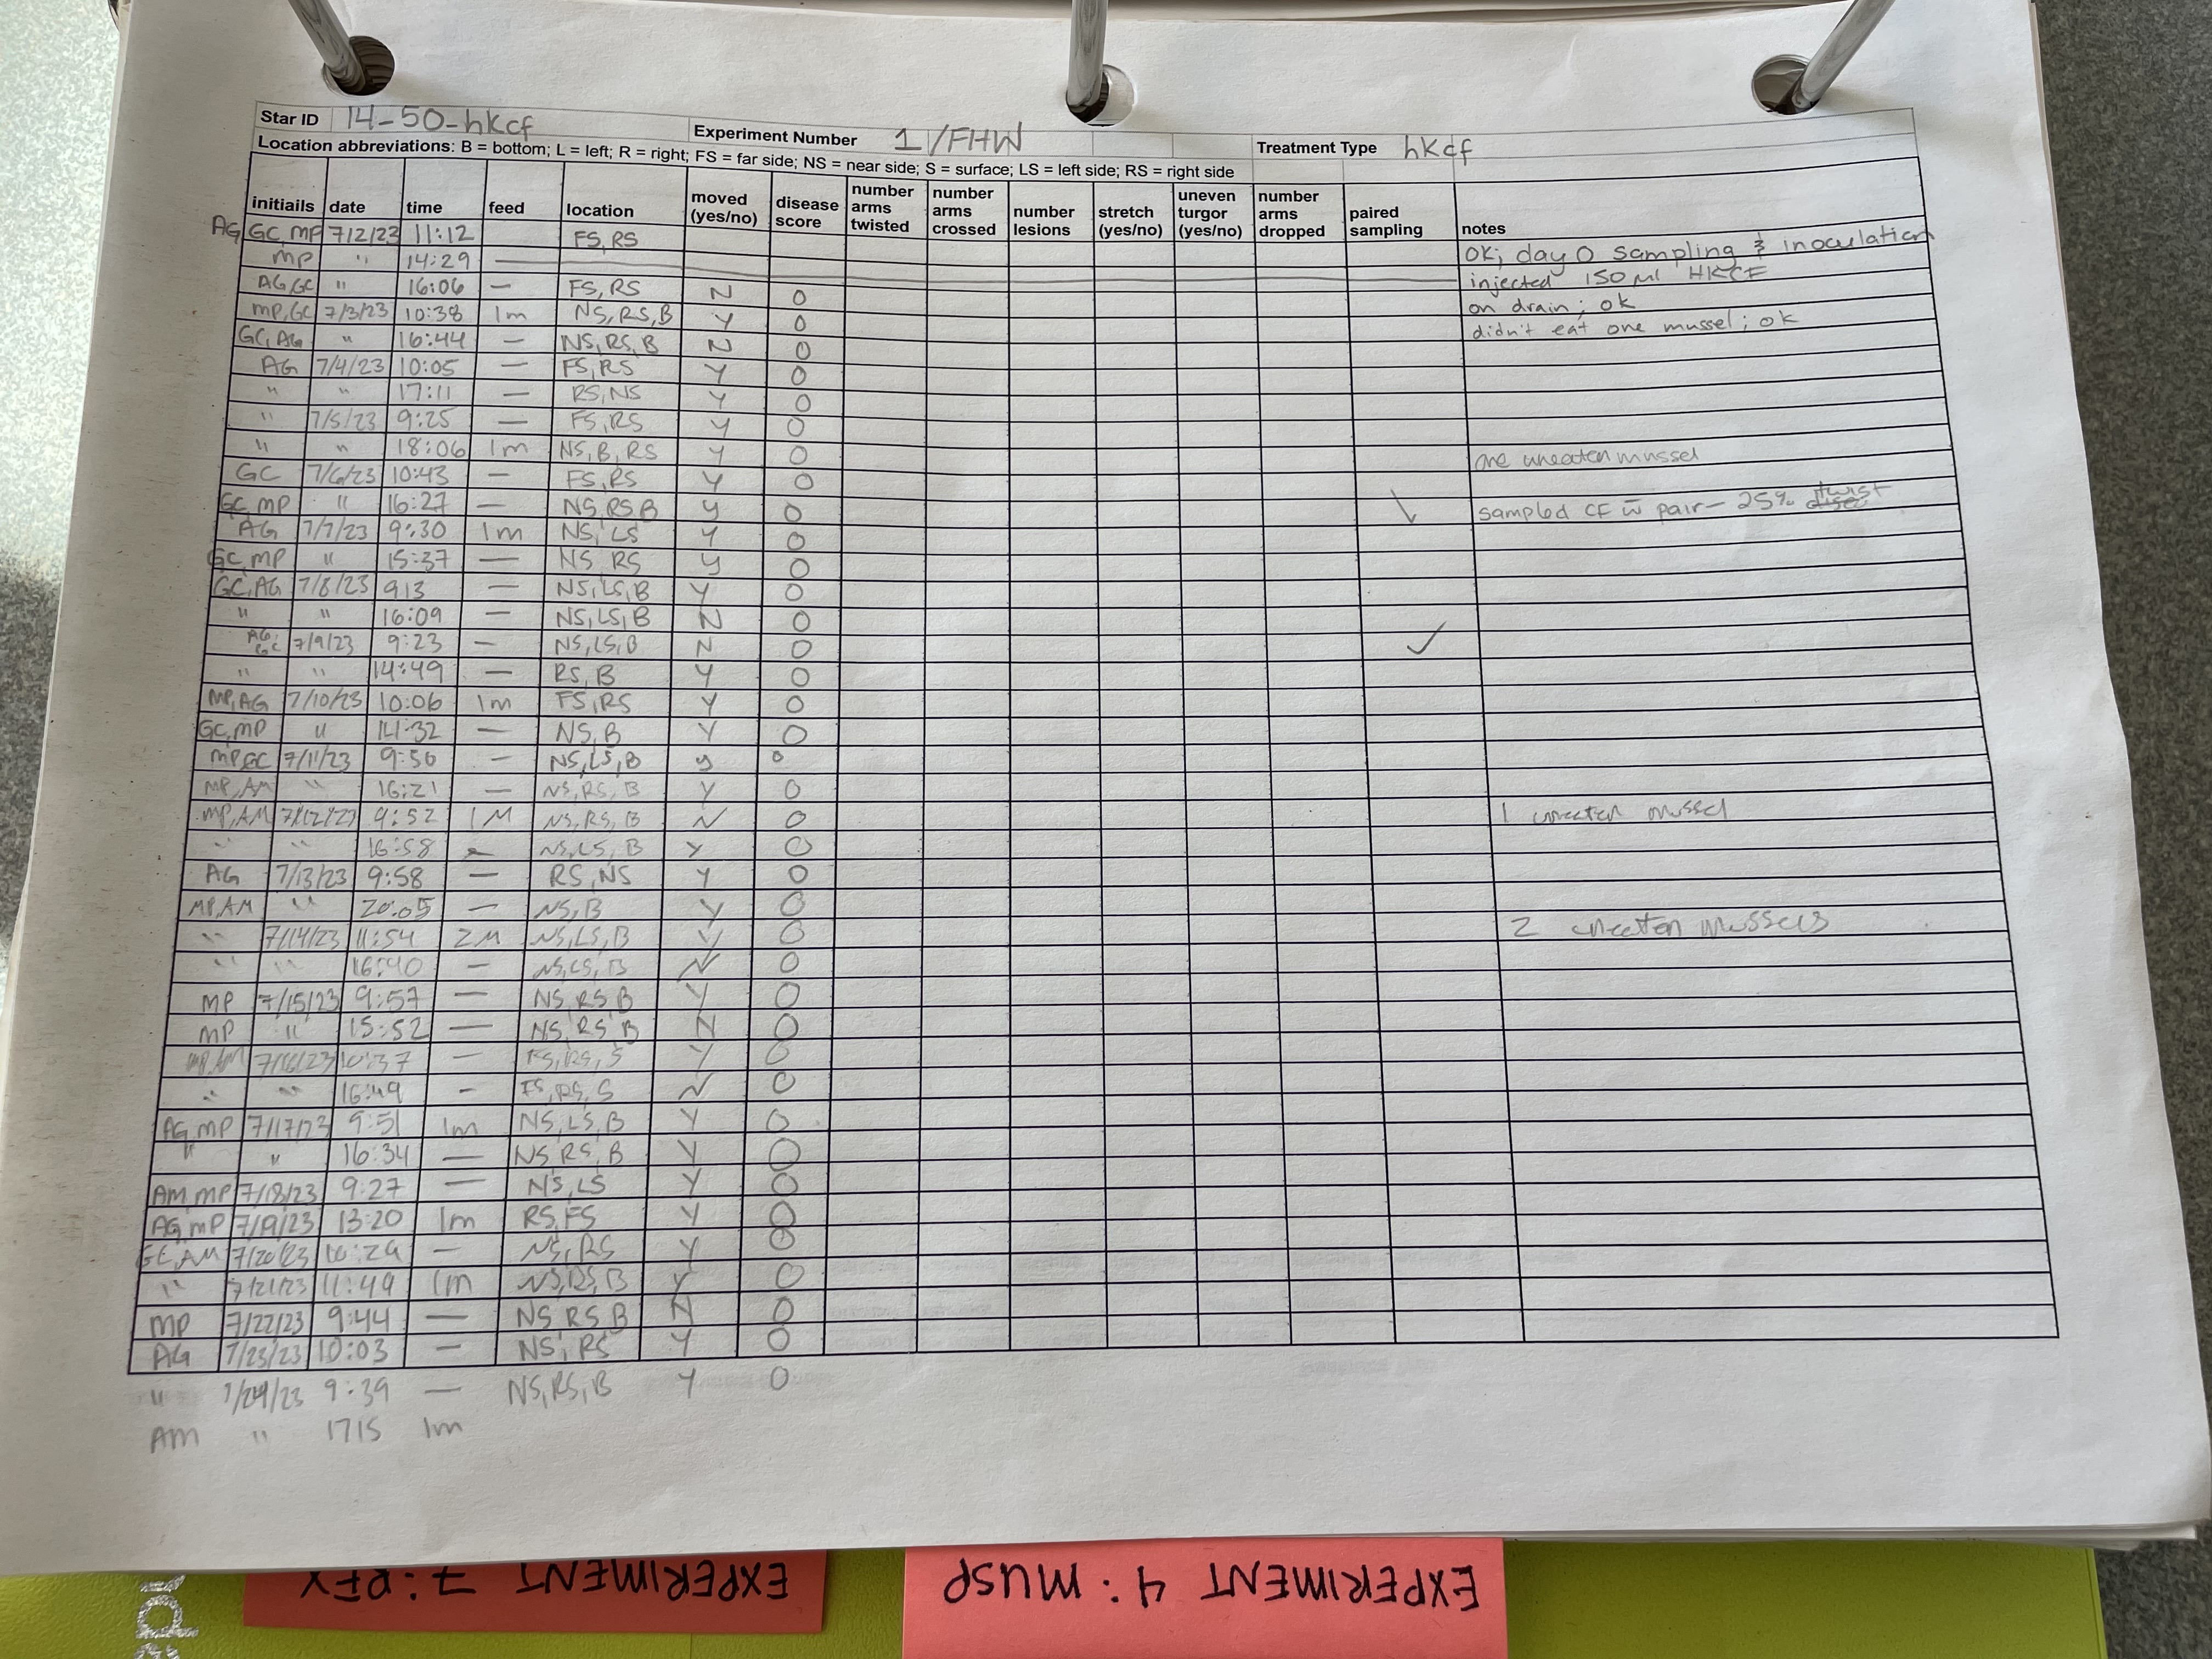 Star ID 14-50-hkcf Experiment Number 1/FHW Treatment Type hkcf
Location abbreviations: B = bottom; L = left; R = right; FS = far side; NS = near side; S = surface; LS = left side; RS = right side
initiails date time feed location moved (yes/no) disease score number arms twisted number arms crossed number lesions stretch (yes/no) uneven turgor (yes/no) number arms dropped paired sampling notes
AG, GC, MP 7/2/23 11:12 FS, RS OK; day 0 sampling & inoculation
MP " 14:29 — injected 150 μl HKCF
AG, GC " 16:06 — FS, RS N 0 on drain; ok
MP, GC 7/3/23 10:38 1m NS, RS, B Y 0 didn't eat one mussel; ok
GC, AG " 16:44 — NS, RS, B N 0
AG 7/4/23 10:05 — FS, RS Y 0
" " 17:11 — RS, NS Y 0
" 7/5/23 9:25 — FS, RS Y 0
" " 18:06 1m NS, B, RS Y 0 one uneaten mussel
GC 7/6/23 10:43 — FS, RS Y 0
GC, MP " 16:27 — NS, RS, B y 0 ✓ sampled CF w̄ pair - 25% twist
AG 7/7/23 9:30 1m NS, LS Y 0
GC, MP " 15:37 — NS, RS y 0
GC, AG 7/8/23 913 — NS, LS, B Y 0
" " 16:09 — NS, LS, B N 0
AG, GC 7/9/23 9:23 — NS, LS, B N 0 ✓
" " 14:49 RS, B Y 0
MP, AG 7/10/23 10:06 1m FS, RS Y 0
GC, MP " 14:32 — NS, B Y 0
MP, GC 7/11/23 9:56 — NS, LS, B y 0
MP, AM " 16:21 — NS, RS, B Y 0
MP, AM 7/12/23 9:52 1M NS, RS, B N 0 1 uneaten mussel
" " 16:58 — NS, LS, B Y 0
AG 7/13/23 9:58 — RS, NS Y 0
MP, AM " 20:05 — NS, B Y 0
" 7/14/23 11:54 2M NS, LS, B Y 0 2 uneaten mussels
" " 16:40 — NS, LS, B N 0
MP 7/15/23 9:57 — NS, RS, B Y 0
MP " 15:52 — NS, RS, B N 0
MP, AM 7/16/23 10:37 — FS, RS, S Y 0
" " 16:49 — FS, RS, S N 0
AG, MP 7/17/23 9:51 1m NS, LS, B Y 0
" " 16:34 — NS, RS, B Y 0
AM, MP 7/18/23 9:27 — NS, LS Y 0
AG, MP 7/19/23 13:20 1m RS, FS Y 0
GC, AM 7/20/23 — NS, RS Y 0
" 7/21/23 11:49 1m NS, RS, B Y 0
MP 7/22/23 9:44 — NS, RS, B N 0
AG 7/23/23 10:03 — NS, RS Y 0
" 7/24/23 9:39 — NS, RS, B Y 0
AM " 1715 1m
EXPERIMENT 7: PFX
EXPERIMENT 4: MUSP